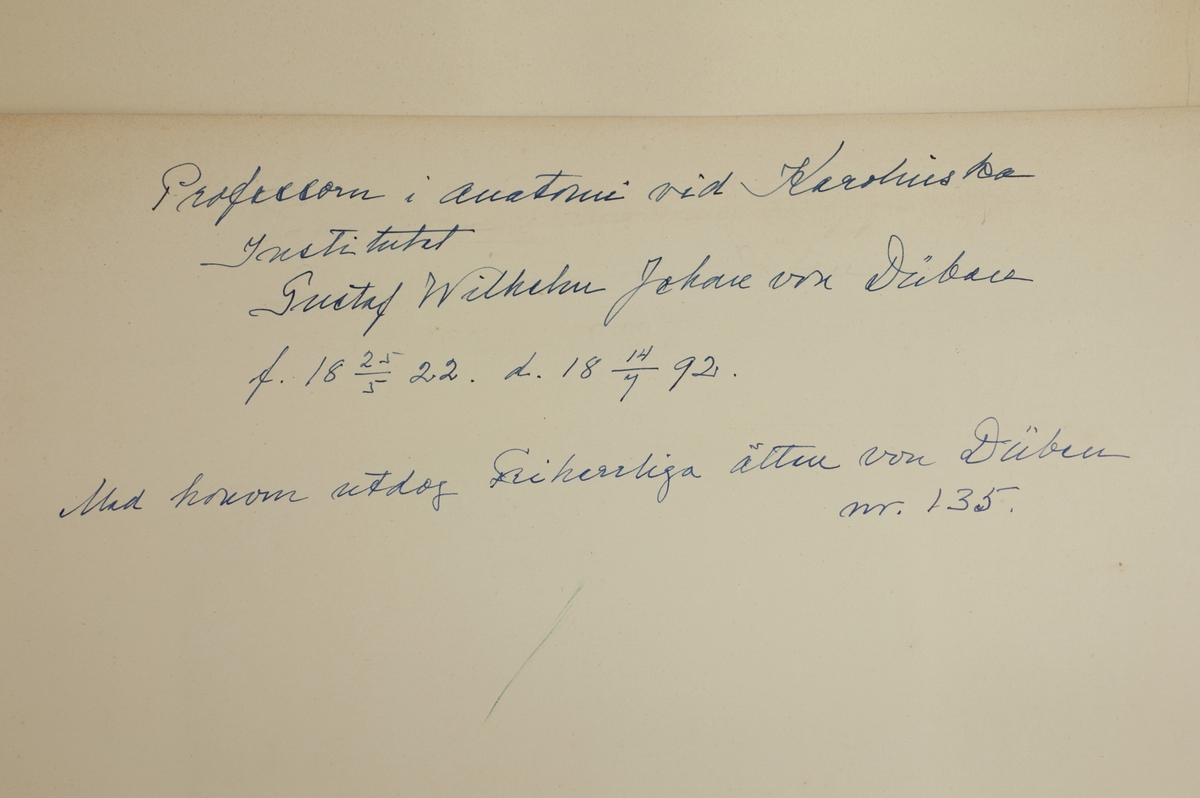 Professorn i anatomi vid Karolinska
Institutet
Gustaf Wilhelm Johan von Düben
f. 18 25/5 22. d. 18 14/7 92.
Med honom utdog Friherrliga ätten von Düben
nr. 135.